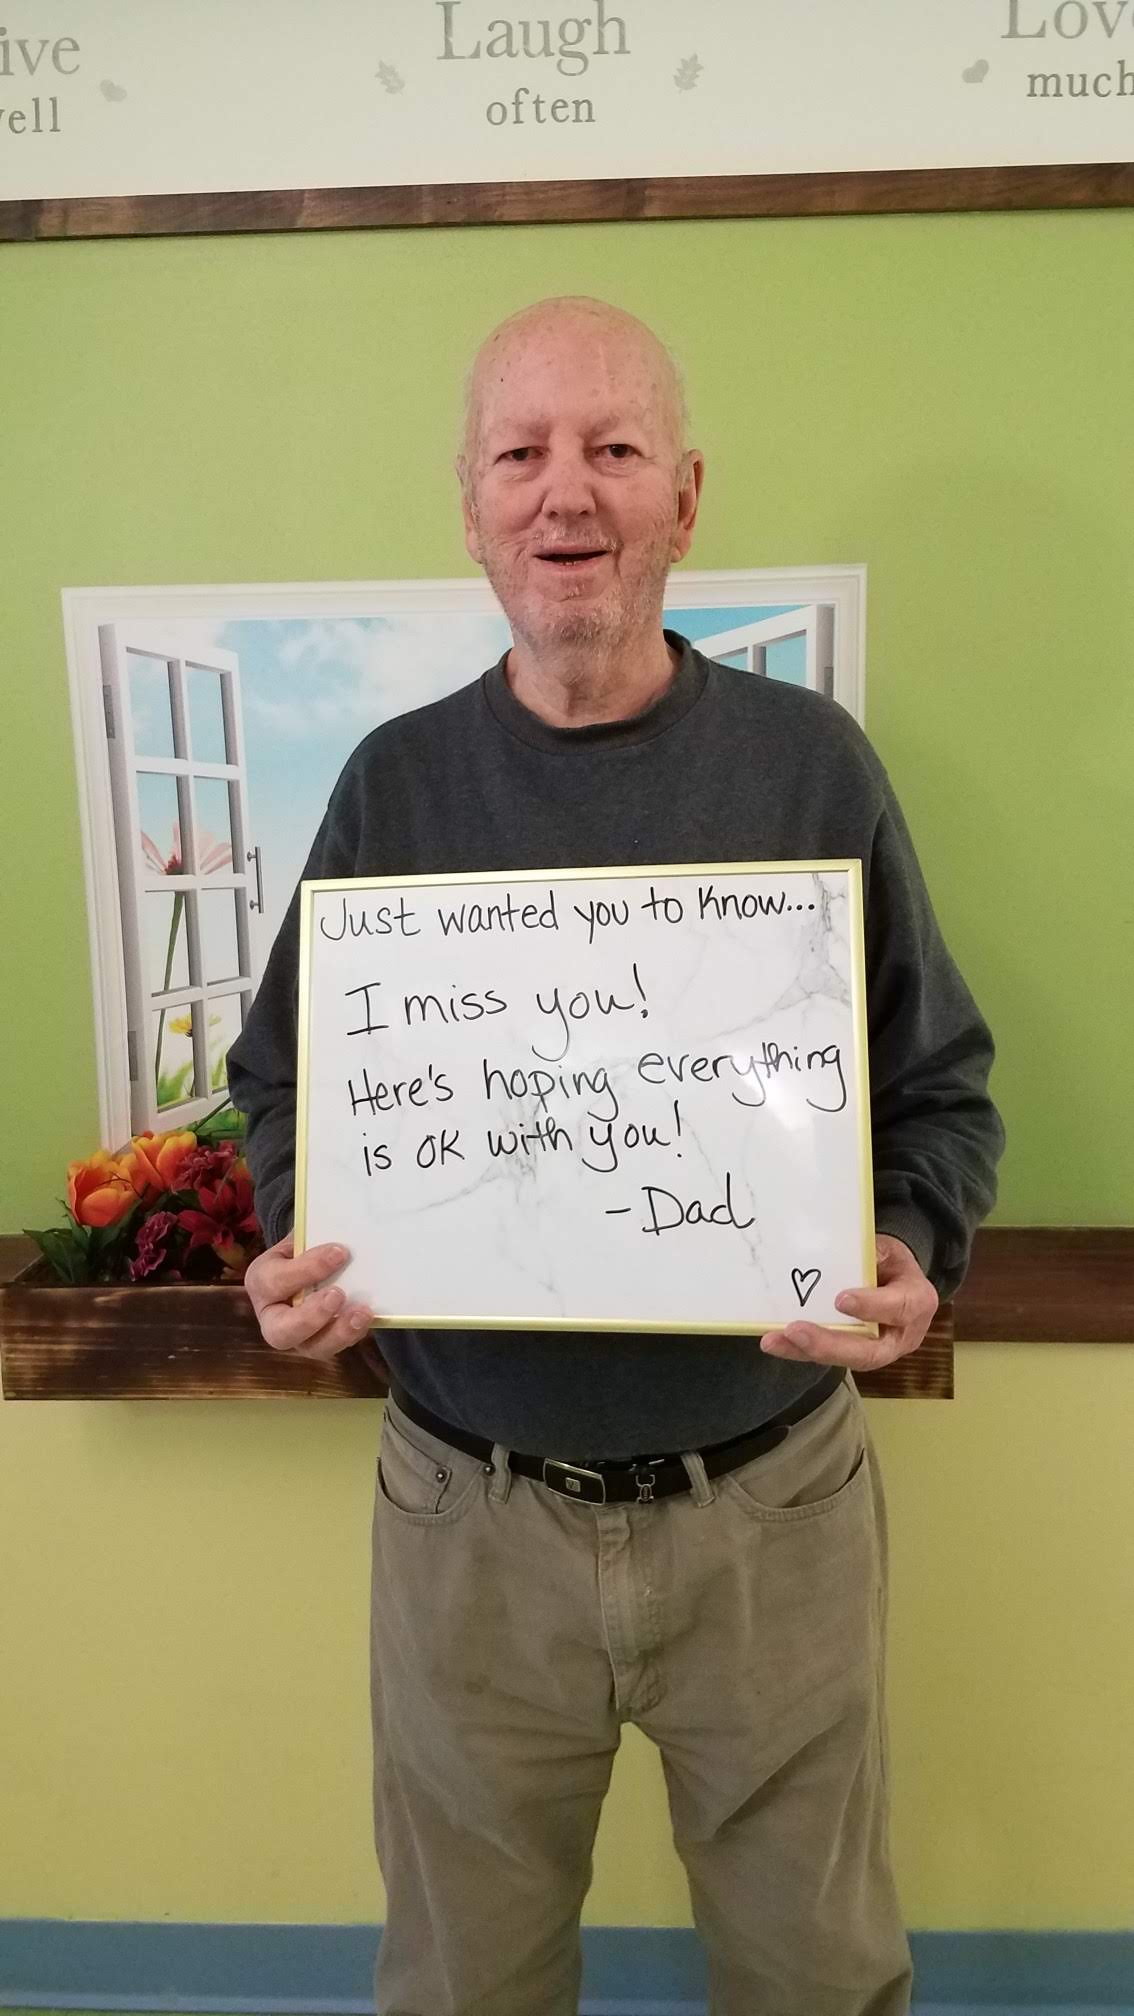 ive
ell
Laugh
often
Lov
much
Just wanted you to know...
I miss you!
Here's hoping everything
is OK with you!
- Dad